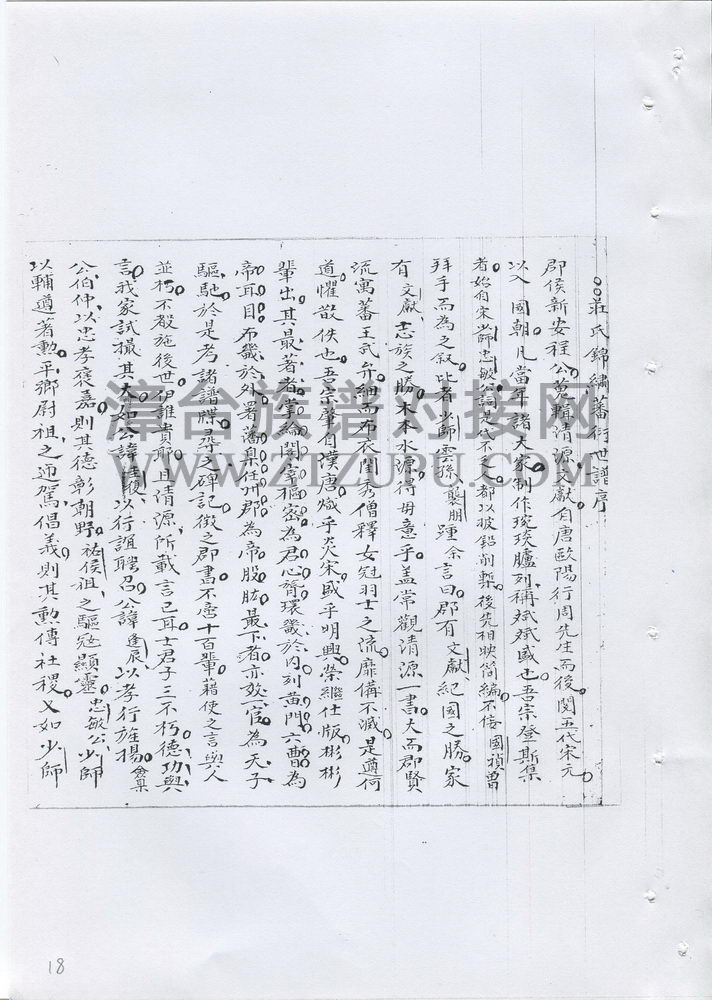 莊氏錦繡蕃衍世譜序
郡侯新安程公蒐輯清源文獻自唐歐陽行周先生而後閱五代宋元
以入國朝凡當年諸大家制作琬琰臚列稱斌斌盛也吾宗登斯集
者始自宋少師忠敏公詞代不乏都以披鉛削槧後先相映簡編不佞國禎曾
拜手而為之叙比者少師雲孫龔朋踵余言曰郡有文獻紀國之勝家
有文獻志族之勝木本水源得毋意乎蓋常觀清源一書大而郡賢
流寓蕃王武弁細而布衣閨秀僧釋女冠羽士之流靡備不減是道何
道懼散佚也吾宗肇自漢唐熾乎炎宋盛乎明興榮繼仕版彬彬
輩出其最著者掌綸閣宰樞密為君心膂環畿於內列黃門六曹為
帝耳目布畿於外署藩臬任州郡為帝股肱最下者亦效一官為天子
驅馳於是考諸譜牒尋之碑記徵之郡書不啻十百輩藉使之言與人
並朽不穀施後世伊誰責耶且清源所載言已耳士君子三不朽德功與
言我家試撮其大如公諱 以行誼聘召公諱逢辰以孝行旌揚 
公伯仲以忠孝褒嘉則其德彰朝野祐侯祖之驅寇顯靈忠敏公少師
以輔遵著勲平鄉尉祖之迎駕倡義則其勲傳社稷又如少師
18
漳台族谱对接网
WWW.ZTZUPU.COM